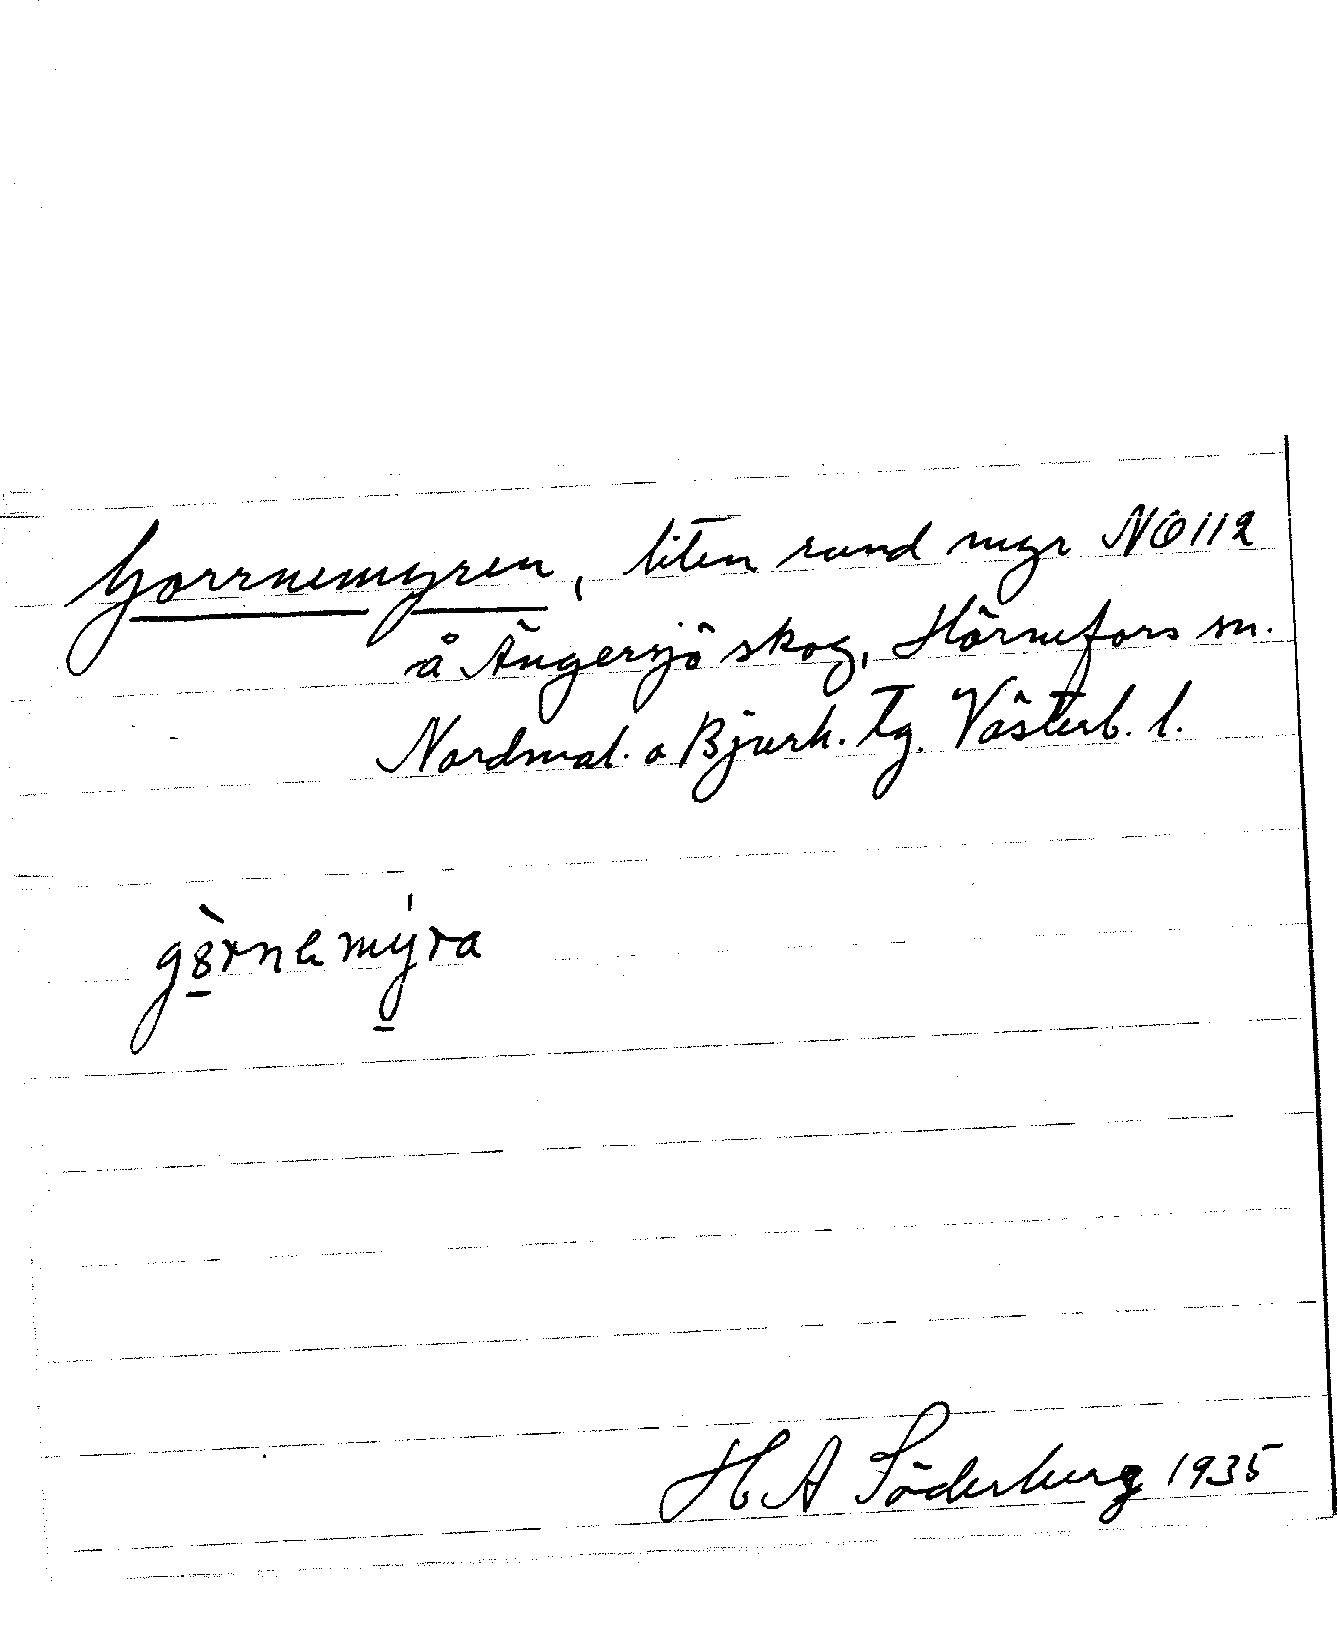 Gorrnemyren, liten rund myr NÖ 112
å Ängersjö skog, Hörnefors sn.
Nordmal. o Bjurh. Tg. Västerb. l.
gòrnemýra
H A Söderberg 1935